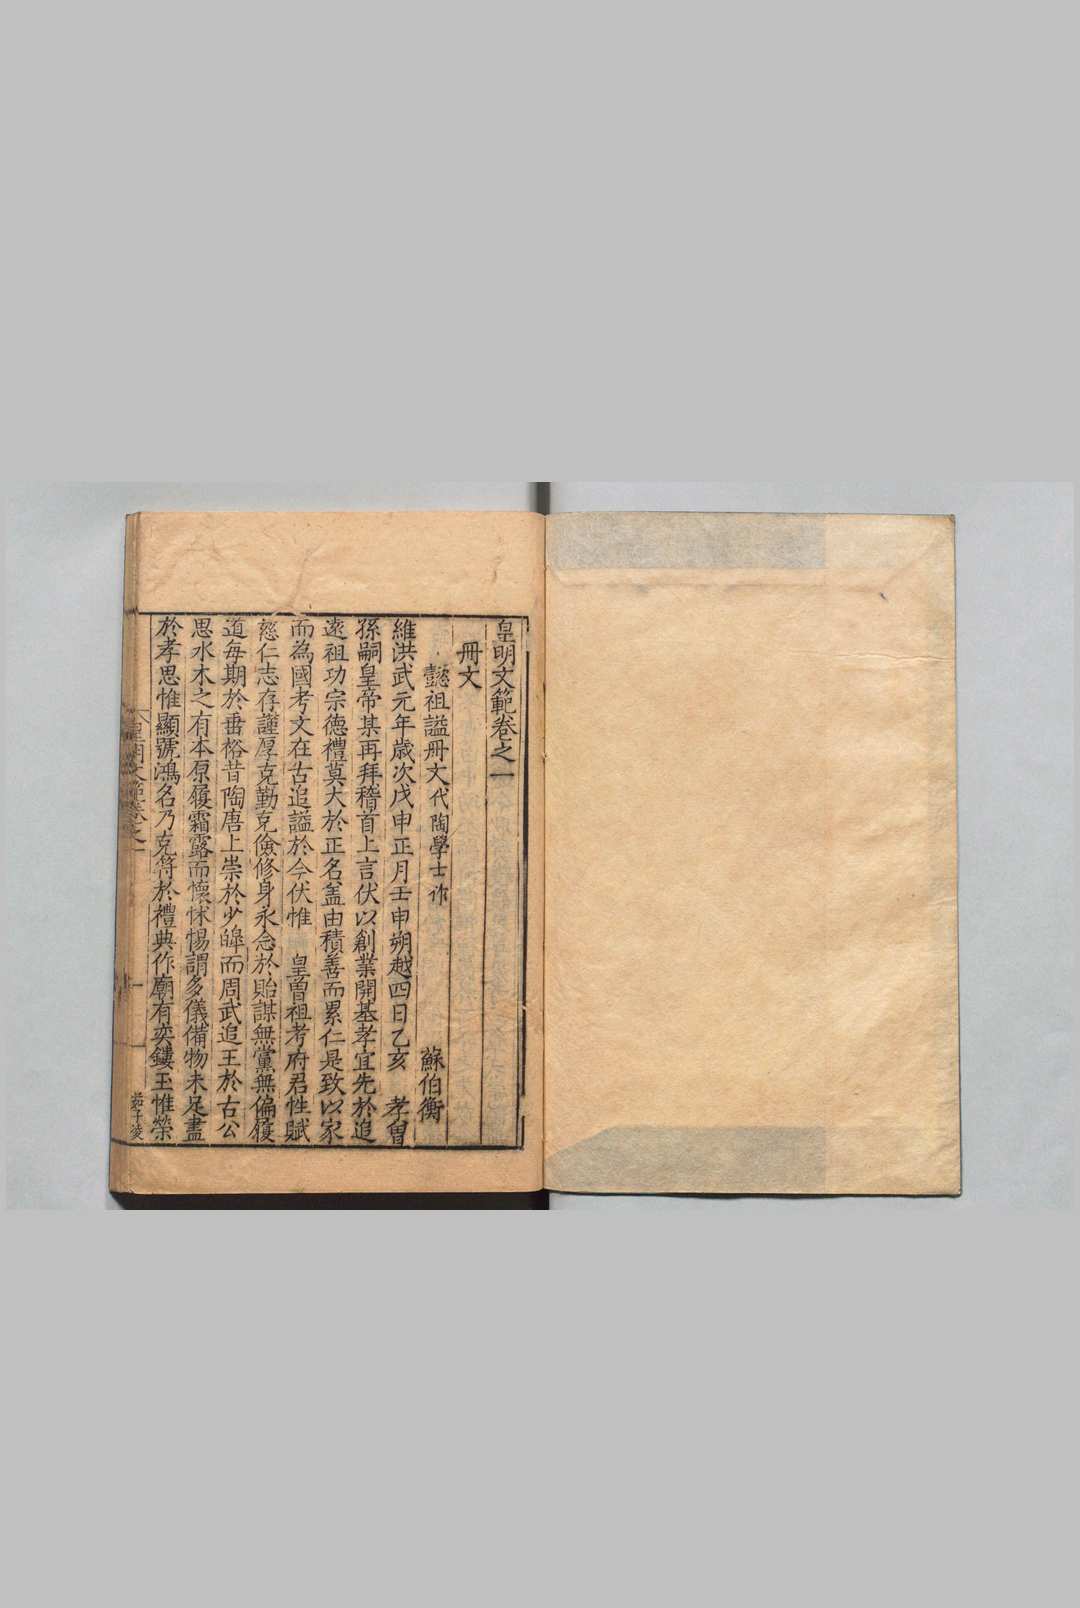 皇明文範卷之一
冊文
懿祖謚冊文代陶學士作
蘇伯衡
維洪武元年歲次戊申正月壬申朔越四日乙亥 孝曾
孫嗣皇帝某再拜稽首上言伏以創業開基孝宜先於追
遠祖功宗德禮莫大於正名盖由積善而累仁是致以家
而為國考文在古追謚於今伏惟 皇曾祖考府君性賦
慈仁志存謹厚克勤克儉修身永念於貽謀無黨無偏履
道每期於垂裕昔陶唐上崇於少皞而周武追王於古公
思水木之有本原履霜露而懷怵惕謂多儀備物未足盡
於孝思惟顯號鴻名乃克符於禮典作廟有奕鏤玉惟榮
皇明文範卷之一
一